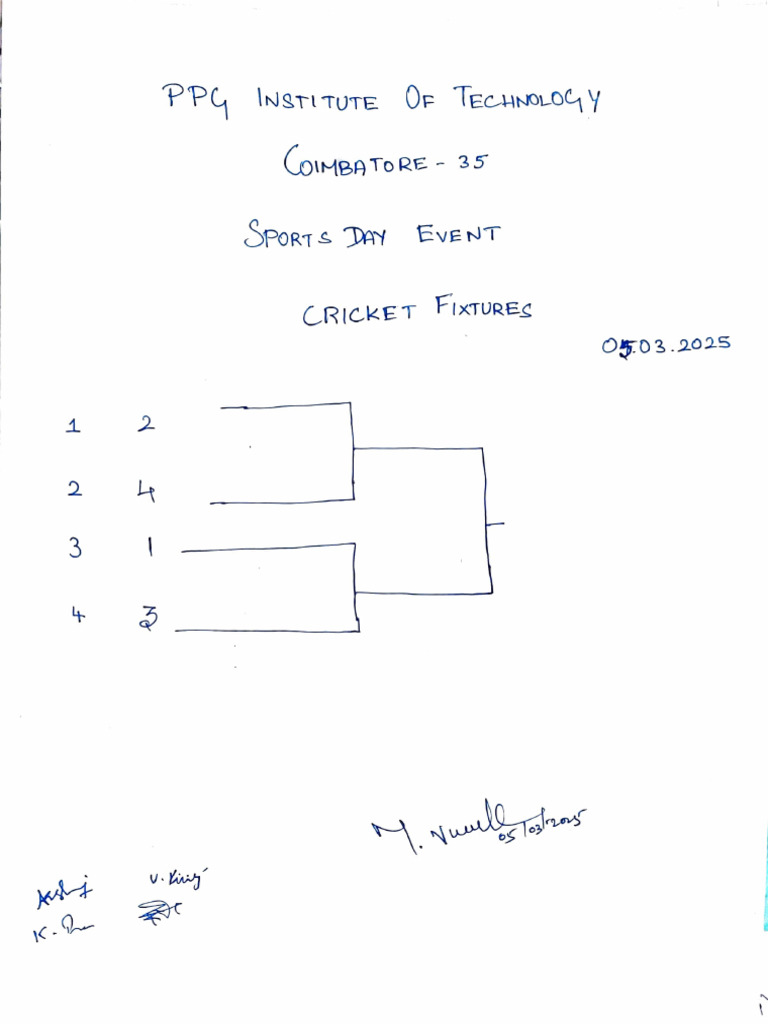 PPG INSTITUTE OF TECHNOLOGY
COIMBATORE - 35
SPORTS DAY EVENT
CRICKET FIXTURES
05.03.2025
1 2
2 4
3 1
4 3
M.
05/03/2025
V.
K.